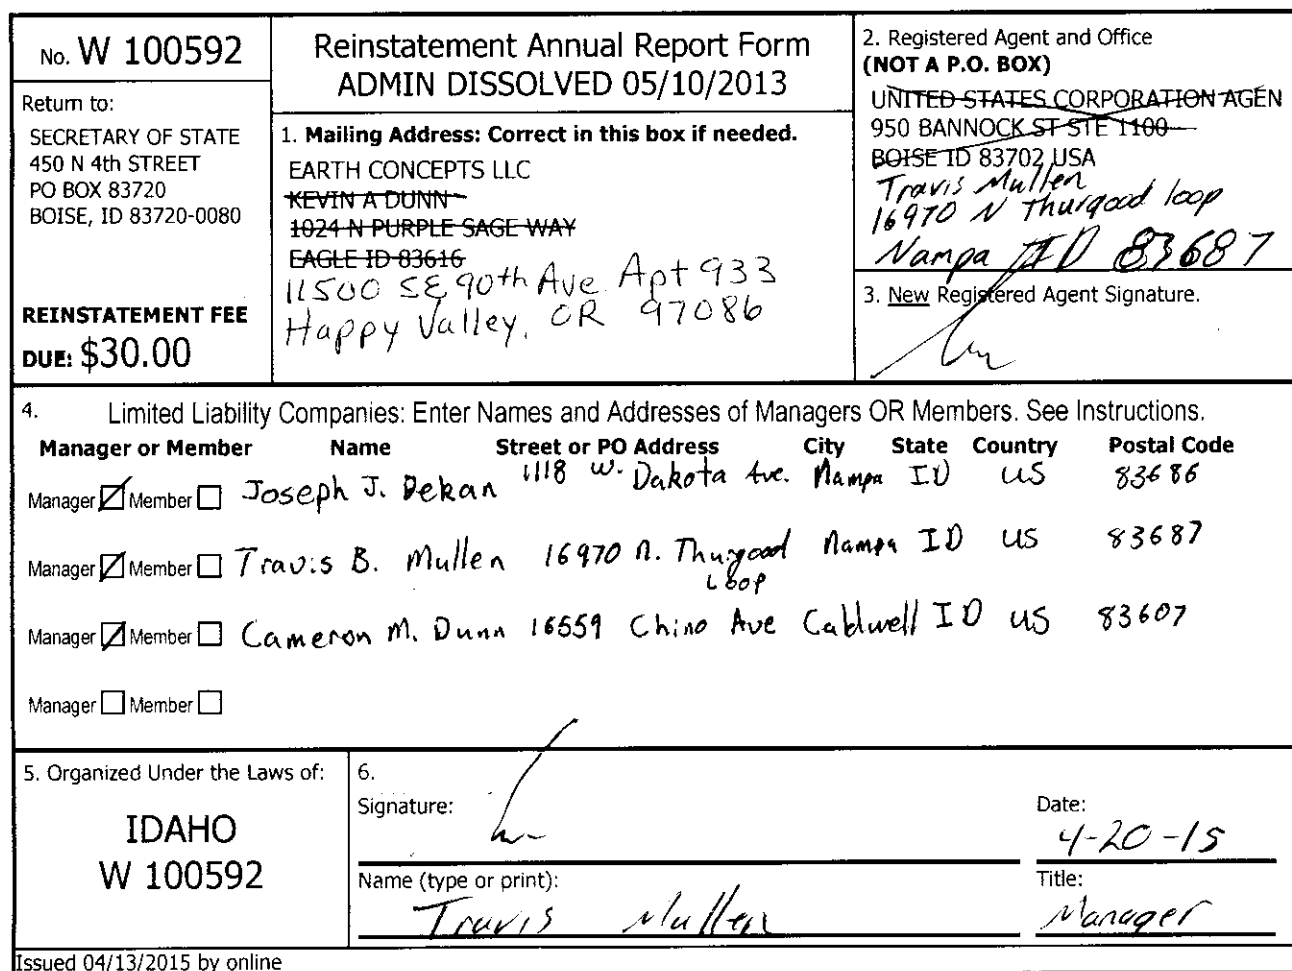 No. W 100592
Return to:
SECRETARY OF STATE
450 N 4th STREET
PO BOX 83720
BOISE, ID 83720-0080
REINSTATEMENT FEE
DUE: $30.00
Reinstatement Annual Report Form
ADMIN DISSOLVED 05/10/2013
1. Mailing Address: Correct in this box if needed.
EARTH CONCEPTS LLC
KEVIN A DUNN
1024 N PURPLE SAGE WAY
EAGLE ID 83616
11500 SE 90th Ave Apt 933
Happy Valley, OR 97086
2. Registered Agent and Office
(NOT A P.O. BOX)
UNITED STATES CORPORATION AGEN
950 BANNOCK ST STE 1100
BOISE ID 83702 USA
Travis Mullen
16970 N Thurgood loop
Nampa ID 83687
3. New Registered Agent Signature.
4. Limited Liability Companies: Enter Names and Addresses of Managers OR Members. See Instructions.
Manager or Member Name Street or PO Address City State Country Postal Code
Manager Member Joseph J. Dekan 1118 W. Dakota Ave. Nampa ID US 83686
Manager Member Travis B. Mullen 16970 N. Thurgood Nampa ID US 83687
Loop
Manager Member Cameron M. Dunn 16559 Chino Ave Caldwell ID US 83607
Manager Member
5. Organized Under the Laws of:
IDAHO
W 100592
6.
Signature:
Date:
4-20-15
Name (type or print):
Travis Mullen
Title:
Manager
Issued 04/13/2015 by online